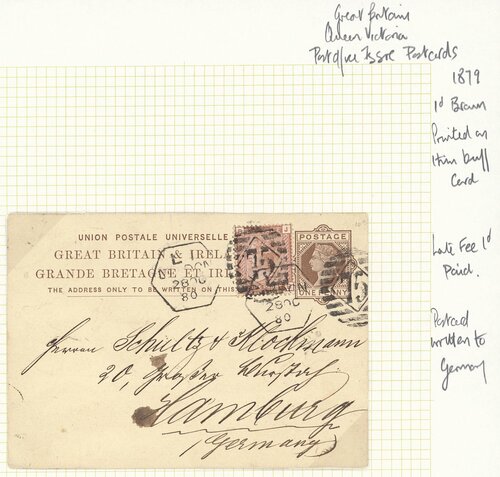 Great Britain
Queen Victoria
Post Office Issue Postcards
1879
1d Brown
Printed on
thin buff
Card
Late Fee 1d
Paid.
Postcard
written to
Germany
UNION POSTALE UNIVERSELLE
GREAT BRITAIN & IREL
GRANDE BRETAGNE ET IR
THE ADDRESS ONLY TO BE WRITTEN ON THIS
POSTAGE
ONE
75
75
28 OC
80
28 OC
80
Herren Schultz & Klockmann
20, Grosser Burstah
Hamburg
(Germany)